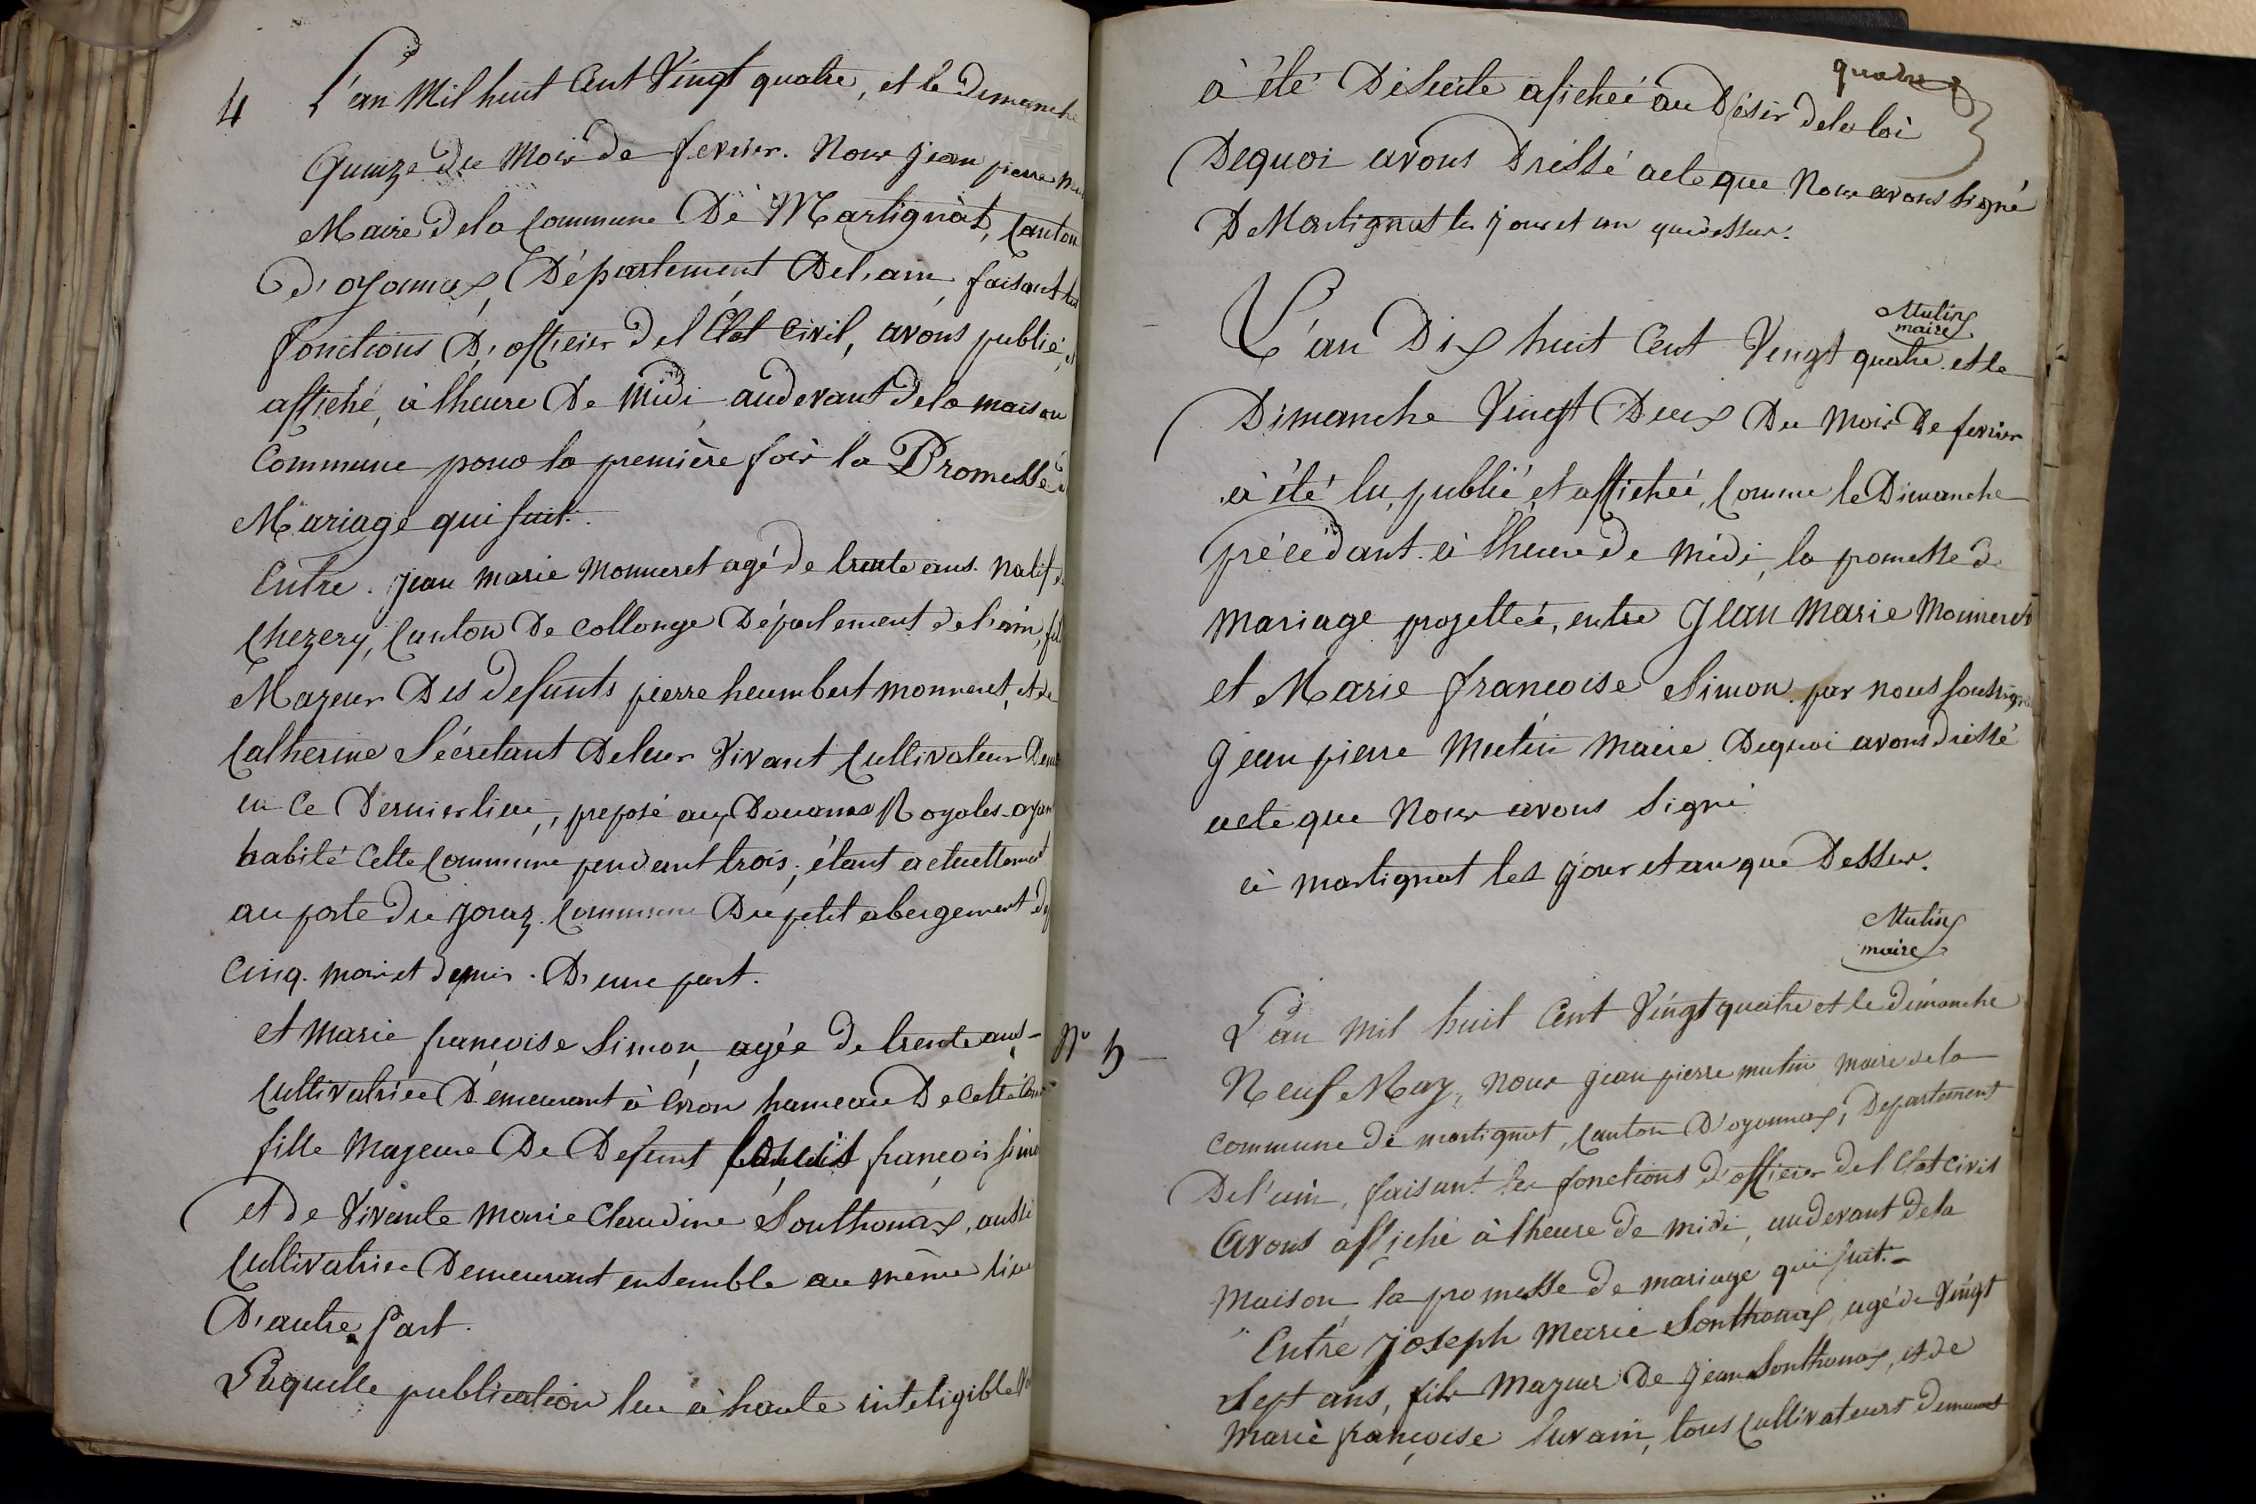 4 L'an Mil huit Cent Vingt quatre, et le dimanche
Quinze du Mois de fevrier. Nous jean pierre
Maire de la Commune De Martignat, Canton
D'oyonnax, Département Del'ain, faisant les
fonctions D'officier del'Etat Civil, avons publié, et
affiché, à l'heure De Midi, audevant dela maison
Commune pour la première fois la Promesse
Mariage qui suit.
Entre. jean marie Monneret agé de trente ans. Natif
Chezery, Canton De Collonge Département del'ain,
Majeur Des defunts pierre heumbert monneret, et de
Catherine Sécretant Deleur Vivant Cultivateur
en Ce Dernier lieu, preposé aux Douanes Royales ayant
habité Cette Commune pendant trois, étant actuellement
au poste du joraz. Commune Du petit abergement
Cinq. mois et demis. D'une part.
et marie françoise Simon, agée de trente ans
Cultivatrice Demeurant à Evron hameau De Cette
fille Majeure De Defunt françois simon
et de Vivante Marie Claudine Sonthonax, aussi
Cultivatrice Demeurant ensemble au même lieu
D'autre Part.
Laquelle publication lue à haute inteligible
quatre
à été Desuite afichée au Désir dela loi
Dequoi avons Dréssé acte que Nous avons signé
De Martignat les jour et an que dessus.
Mutin
maire
L'an Dix huit Cent Vingt quatre et le
Dimanche Vingt Deux Du Mois De fevrier
à été lu, publié, et affichée, Comme le Dimanche
précédant à l'heure de midi, la promesse de
mariage projettée, entre Jean Marie Monneret
et Marie francoise Simon par nous soussigné
jean pierre Mutin Maire Dequoi avons dressé
acte que Nous avons signé
à martignat les jour et an que Dessus.
Mutin
maire
N° 5 L'an mil huit Cent Vingt quatre et le dimanche
Neuf May, nous jean pierre mutin maire dela
commune de martignat, Canton D'oyonnax, Departement
Del'ain, faisant les fonctions d'officier del'Etat Civil
Avons affiché à l'heure de midi, audevant dela
maison la promesse de mariage qui suit.
Entre joseph Marie Sonthonax, agé de Vingt
Sept ans, fils Majeur De jean Sonthonax, et de
Marie françoise, tous Cultivateurs